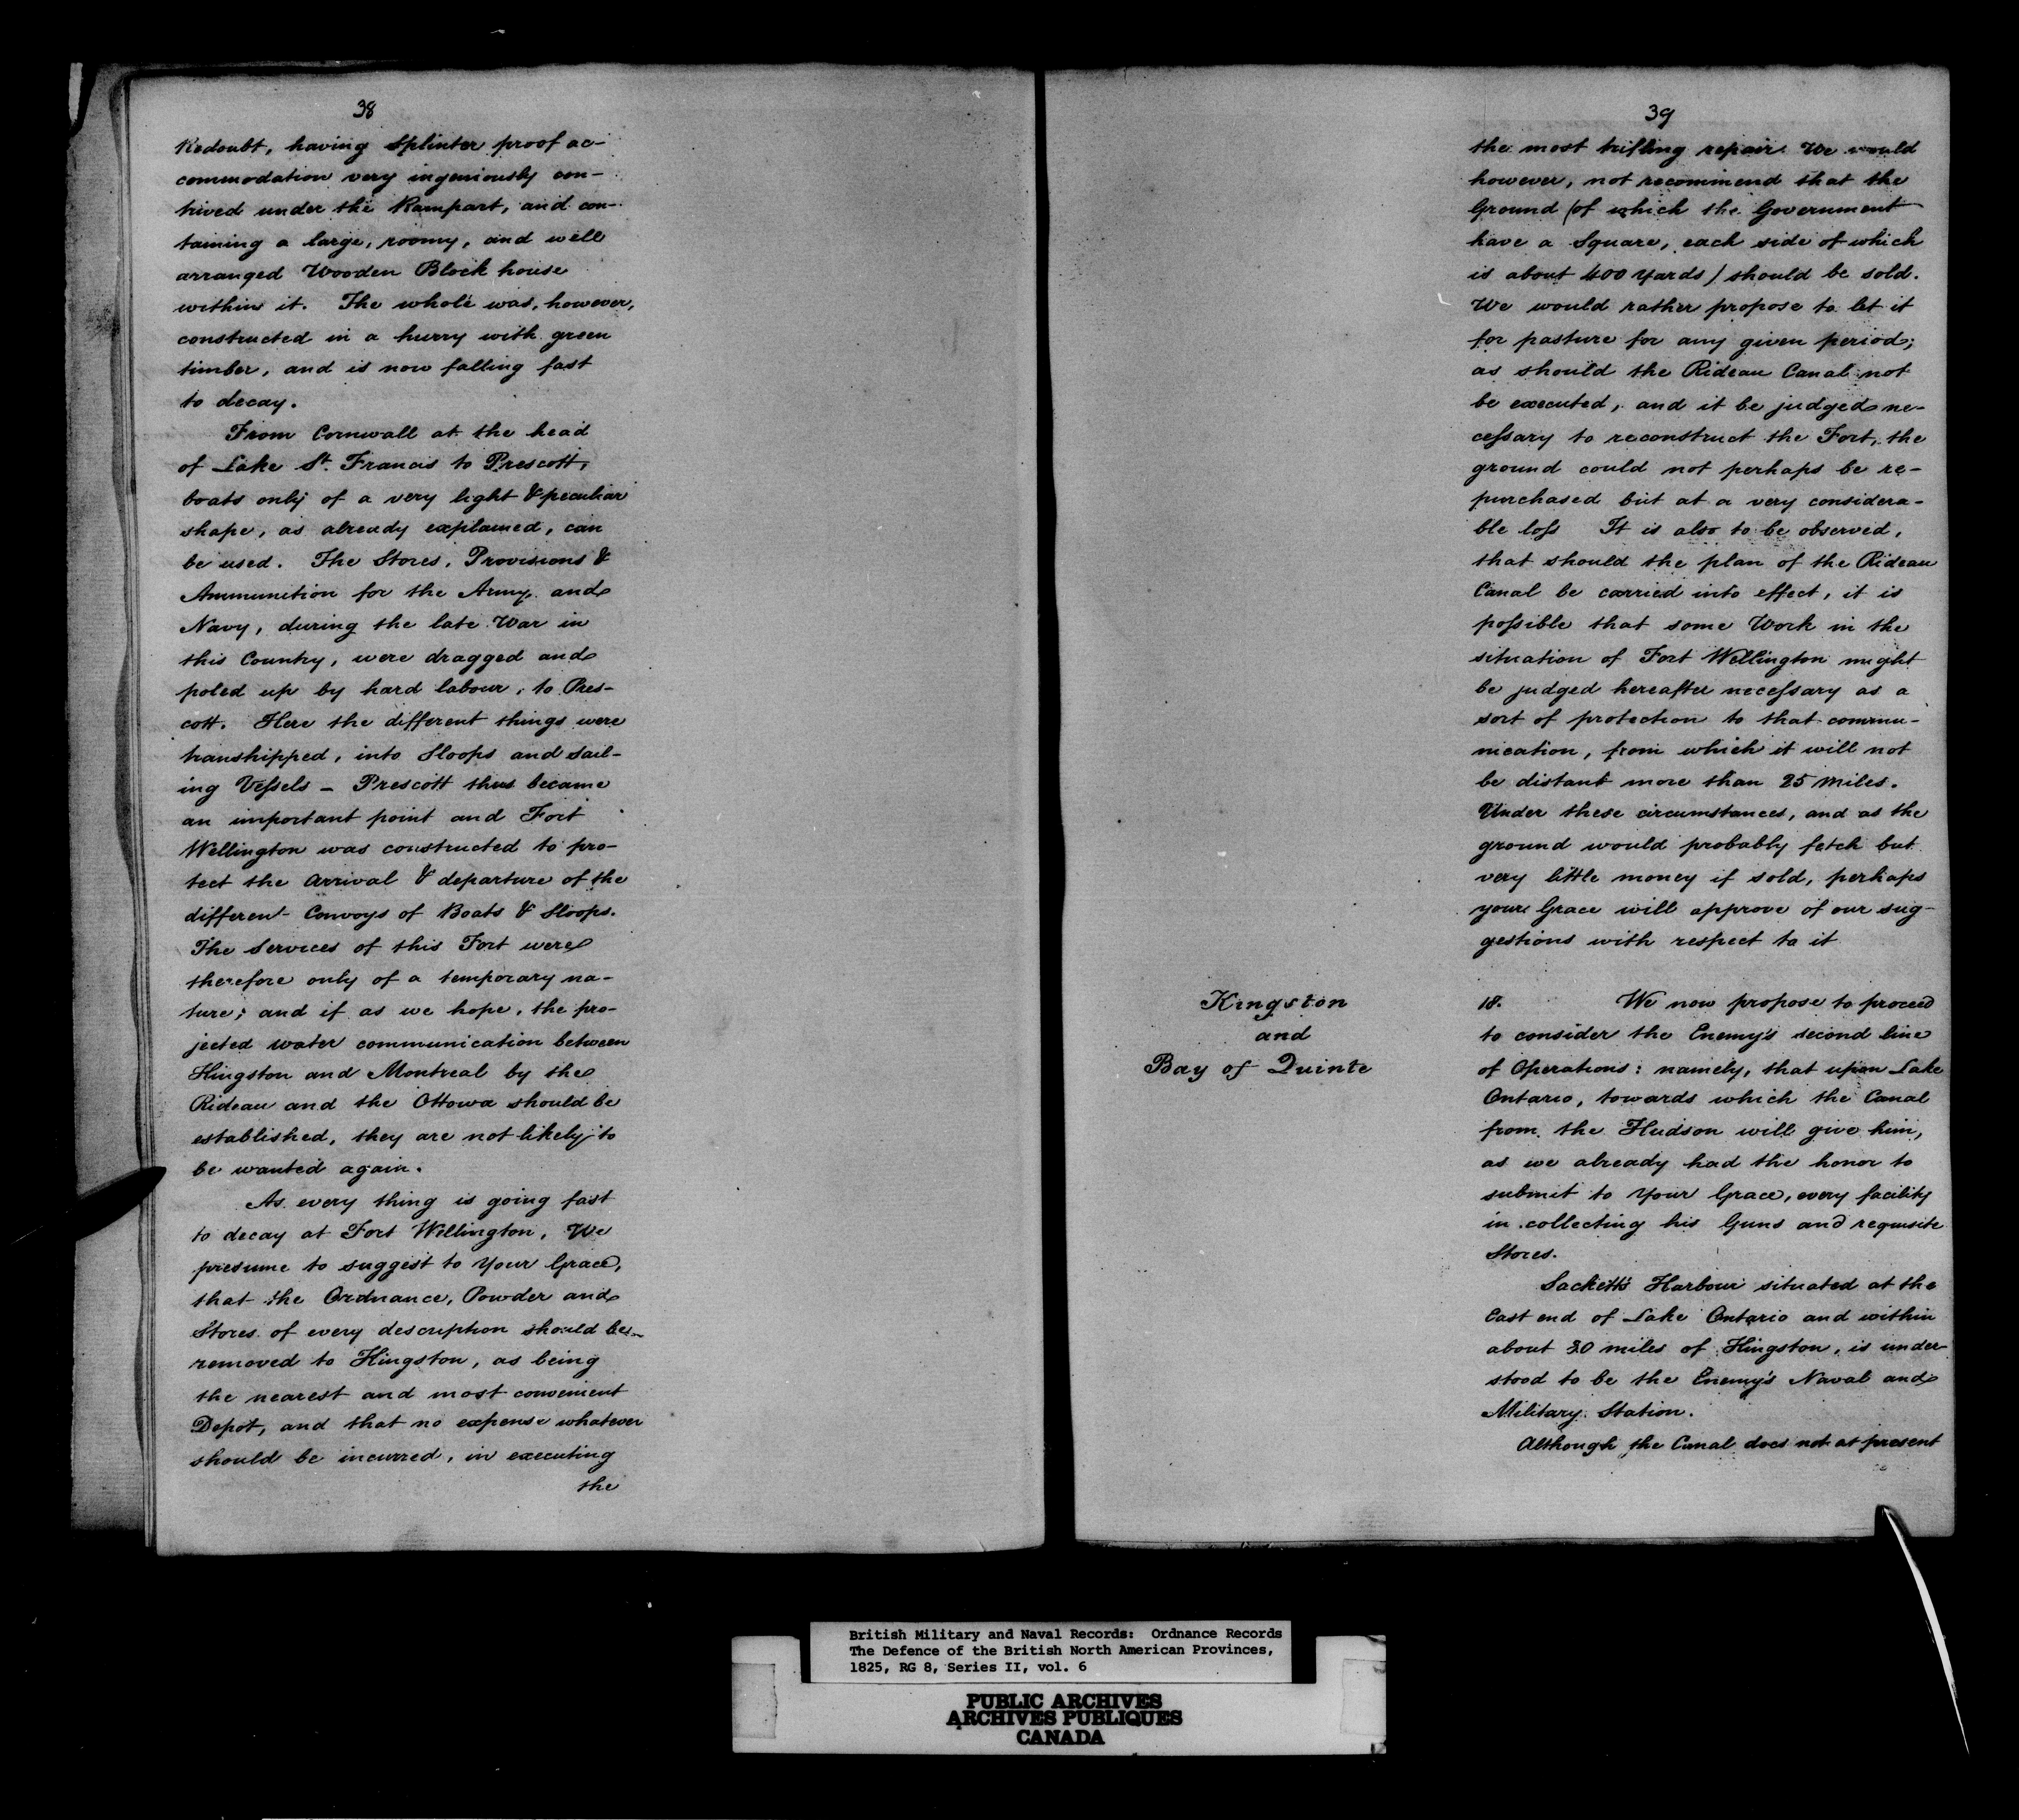 38
Redoubt, having Splinter proof ac-
commodation very ingeniously con-
trived under the Rampart, and con-
taining a large, roomy, and well
arranged Wooden Block house
within it. The whole was, however,
constructed in a hurry with green
timber, and is now falling fast
to decay.
From Cornwall at the head
of Lake St. Francis to Prescott,
boats only of a very light & peculiar
shape, as already explained, can
be used. The Stores, Provisions &
Ammunition for the Army and
Navy, during the late War in
this Country, were dragged and
poled up by hard labour, to Pres-
cott. Here the different things were
transhipped, into Sloops and Sail-
ing Veſsels - Prescott thus became
an important point and Fort
Wellington was constructed to pro-
tect the arrival & departure of the
different Convoys of Boats & Sloops.
The Services of this Fort were
therefore only of a temporary na-
ture; and if as we hope, the pro-
jected water communication between
Kingston and Montreal by the
Rideau and the Ottowa should be
established, they are not likely to
be wanted again.
As every thing is going fast
to decay at Fort Wellington, We
presume to suggest to Your Grace,
that the Ordnance, Powder and
Stores of every description should be
removed to Kingston, as being
the nearest and most convenient
Depot, and that no expense whatever
should be incurred, in executing
the
39
the most trifling repair. We would
however, not recommend that the
Ground (of which the Government
have a Square, each side of which
is about 400 Yards) should be sold.
We would rather propose to let it
for pasture for any given period;
as should the Rideau Canal not
be executed, and it be judged ne-
ceſsary to reconstruct the Fort, the
ground could not perhaps be re-
purchased but at a very considera-
ble loſs It is also to be observed,
that should the plan of the Rideau
Canal be carried into effect, it is
poſsible that some Work in the
situation of Fort Wellington might
be judged hereafter neceſsary as a
sort of protection to that commu-
nication, from which it will not
be distant more than 25 Miles.
Under these circumstances, and as the
ground would probably fetch but
very little money if sold, perhaps
your Grace will approve of our sug-
gestions with respect to it
Kingston
and
Bay of Quinte
18. We now propose to proceed
to consider the Enemy's second line
of Operations: namely, that upon Lake
Ontario, towards which the Canal
from the Hudson will give him,
as we already had the honor to
submit to Your Grace, every facility
in collecting his Guns and requisite
Stores.
Sackett's Harbour situated at the
East end of Lake Ontario and within
about 30 miles of Kingston, is under-
stood to be the Enemy's Naval and
Military Station.
Although the Canal does not at present
British Military and Naval Records: Ordnance Records
The Defence of the British North American Provinces,
1825, RG 8, Series II, vol. 6
PUBLIC ARCHIVES
ARCHIVES PUBLIQUES
CANADA